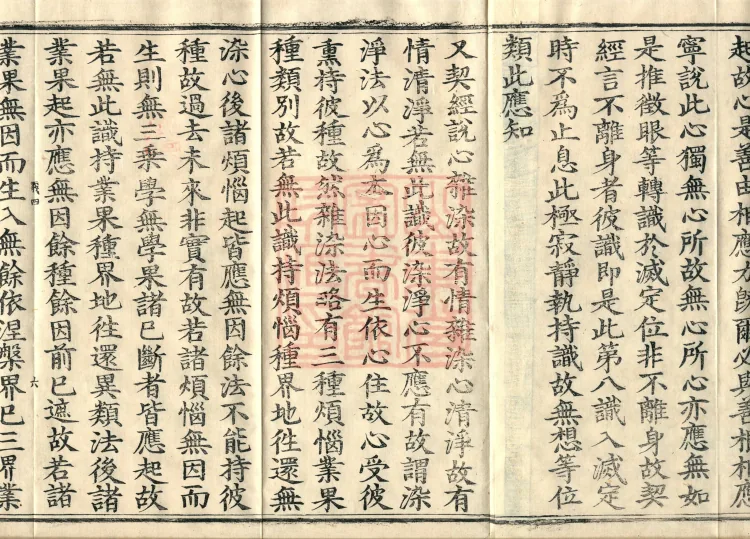 起故心是善由相應力既爾必與善根相應
寧說此心獨無心所故無心所心亦應無如
是推徵眼等轉識於滅定位非不離身故契
經言不離身者彼識即是此第八識入滅定
時不爲止息此極寂靜執持識故無想等位
類此應知
又契經說心雜染故有情雜染心清淨故有
情清淨若無此識彼染淨心不應有故謂染
淨法以心爲本因心而生依心住故心受彼
熏持彼種故然雜染法略有三種煩惱業果
種類別故若無此識持煩惱種界地往還無
染心後諸煩惱起皆應無因餘法不能持彼
種故過去未來非實有故若諸煩惱無因而
生則無三乘學無學果諸已斷者皆應起故
若無此識持業果種界地往還異類法後諸
業果起亦應無因餘種餘因前已遮故若諸
四 六
業果無因而生入無餘依涅槃界已三界業